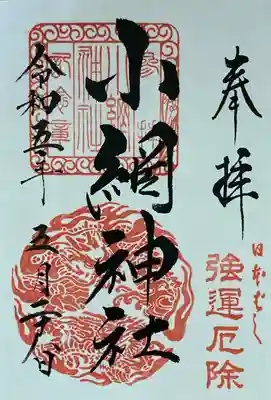 奉拝
日本ばし
強運厄除
小網神社
令和五年
五月二日